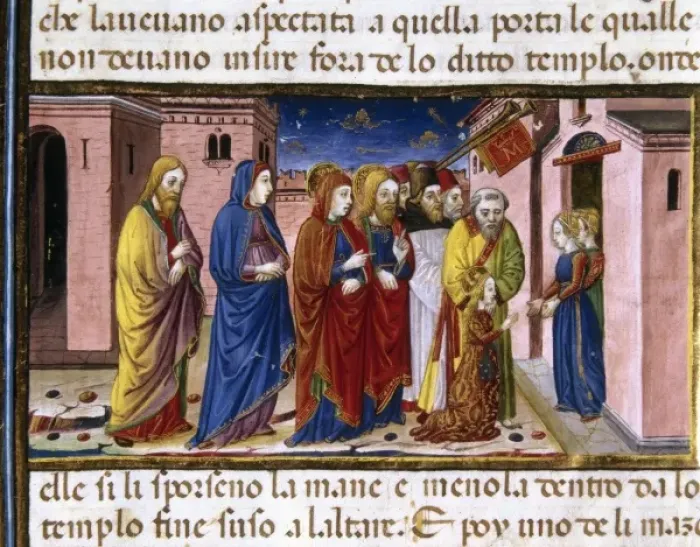 che laueuano aspectata a quella porta le qualle
non deuano insire fora de lo ditto templo. onde
elle si li sporseno la mane e menola dentro da lo
templo fine suso a laltare. E poy uno de li